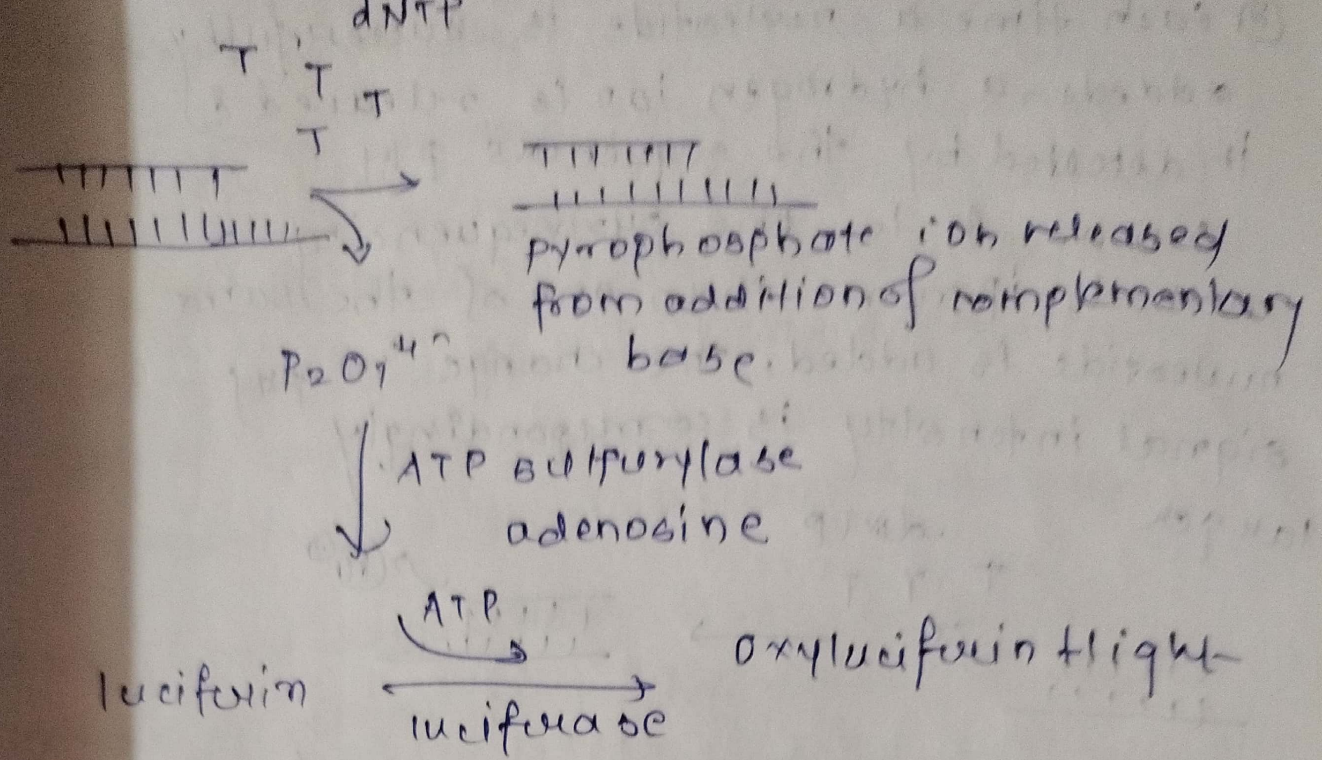 dNTP
T
T
T
T
pyrophosphate ion released
from addition of complementary
base.
P2O7 4-
ATP sulfurylase
adenosine
ATP
luciferin
oxyluciferin + light
luciferase